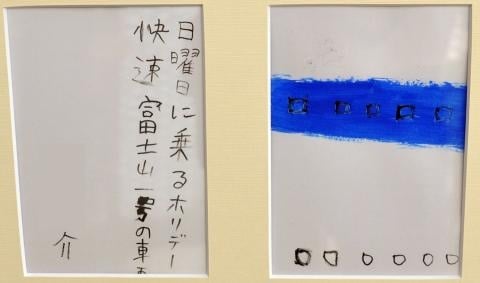 日曜日に乗るホリデー
快速富士山一号の車
介